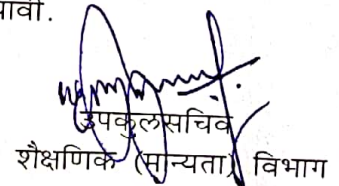 उपकुलसचिव
शैक्षणिक (मान्यता) विभाग